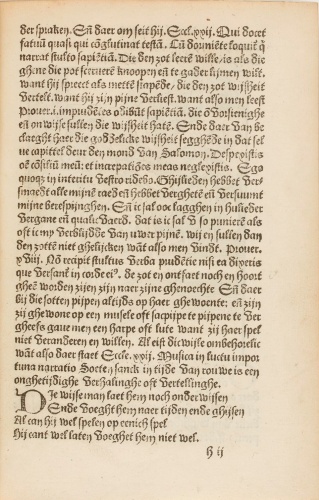 der spraken. Eñ daer om seit hij. Eccl. xxij. Qui docet
fatuū quasi qui cōglutinat testā. Cū dormiēte loquit̄ q̄
narrat stulto sapiētiā. Die den zot leerē wille, is als die
ghene die pot sceruerē knoopen eñ te gader lijmen wilt.
want hij spreect als mettē slapēde, die den zot wijsheit
vertelt. want hi zijn pijne verliest. want also men leest
Prouer. i. imprudētes odibūt sapiētiā. die ōvorsienighe
eñ onwise sullen die wijsheit hatē. Ende daer van be
claeght haer die goddelicke wijsheit segghēde in dat sel
ue capittel deur den mond van Salomon. Despexistis
oē cōsiliū meū: et increpatiōes meas neglexistis. Ego
quoqz in interitu vestro ridebo. Ghijlieden hebbet ver
smaedt alle mijnē raed eñ hebbet verghetē eñ versuumt
mijne berespijnghen. Eñ ic sal ooc lagghen in hulieder
vergane eñ qualicvaerd. dat is ic sal v so punierē als
oft ic my verblijdde van uwer pijnē. wij en sullen dan
den zottē niet ghelijcken wāt alsos men vindt. Prouer.
xviij. Nō recipit stultus verba prudētie nisi ea dixeris
que versant̄ in corde ei⁹. de zot en ontfaet noch en hoort
gheē worden zijen zijn naer zijne ghenochte Eñ daer
bij die sotten pijpen altijds op haer ghewoente: eñ zijn
zij ghewone op een musele oft sacpijpe te pijpene te ver
gheefs gaue men een harpe oft lute want zij haer spel
niet veranderen en willen. Al eist dicwijle ombehorelic
wāt also daer staet Eccle. xxij. Musica in luctu impor
tuna narratio Sottē sanck in tijde van rouwe is een
onghetijdighe verhalinghe oft vertellinghe.
Die wise man laet hem noch onderwisen
Ende voeght hem naer tijden ende ghijsen
Al can hij wel spelen op eenich spel
Hij cant wel laten voeghet hem niet wel.
h ij